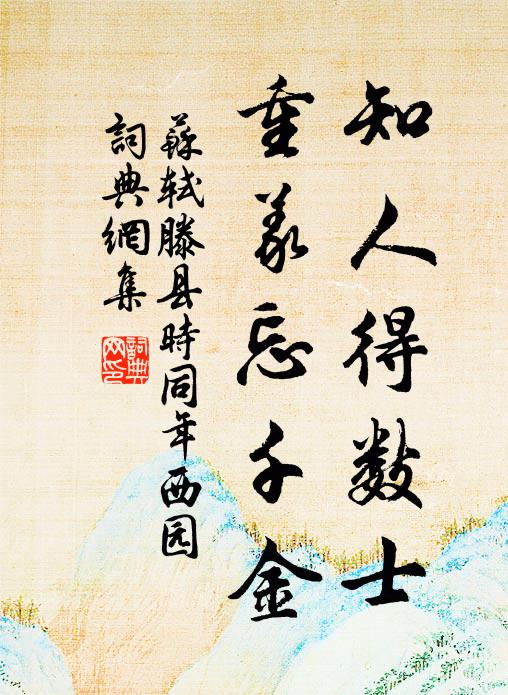 知人得数士
重义忘千金
蘇轼滕县時同年西园
詞典網集
詞典
网印